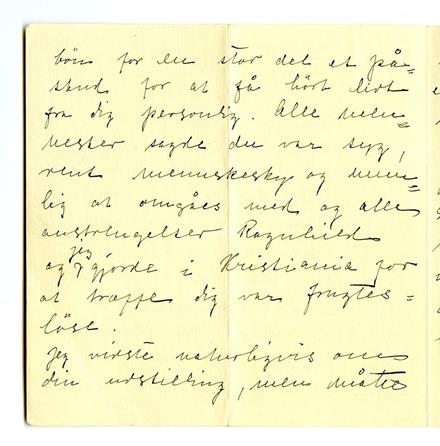 bön for en stor del et på-
skud for at få hört lidt
fra dig personlig. Alle
sagde du var syg,
rent menneskesky og umu-
lig at omgåes med og alle
anstrengelser Ragnhild
og jeg gjorde i Kristiania for
at træffe dig var frugtes=
löse.
Jeg vidste naturligvis om
din udstilling, men måtte